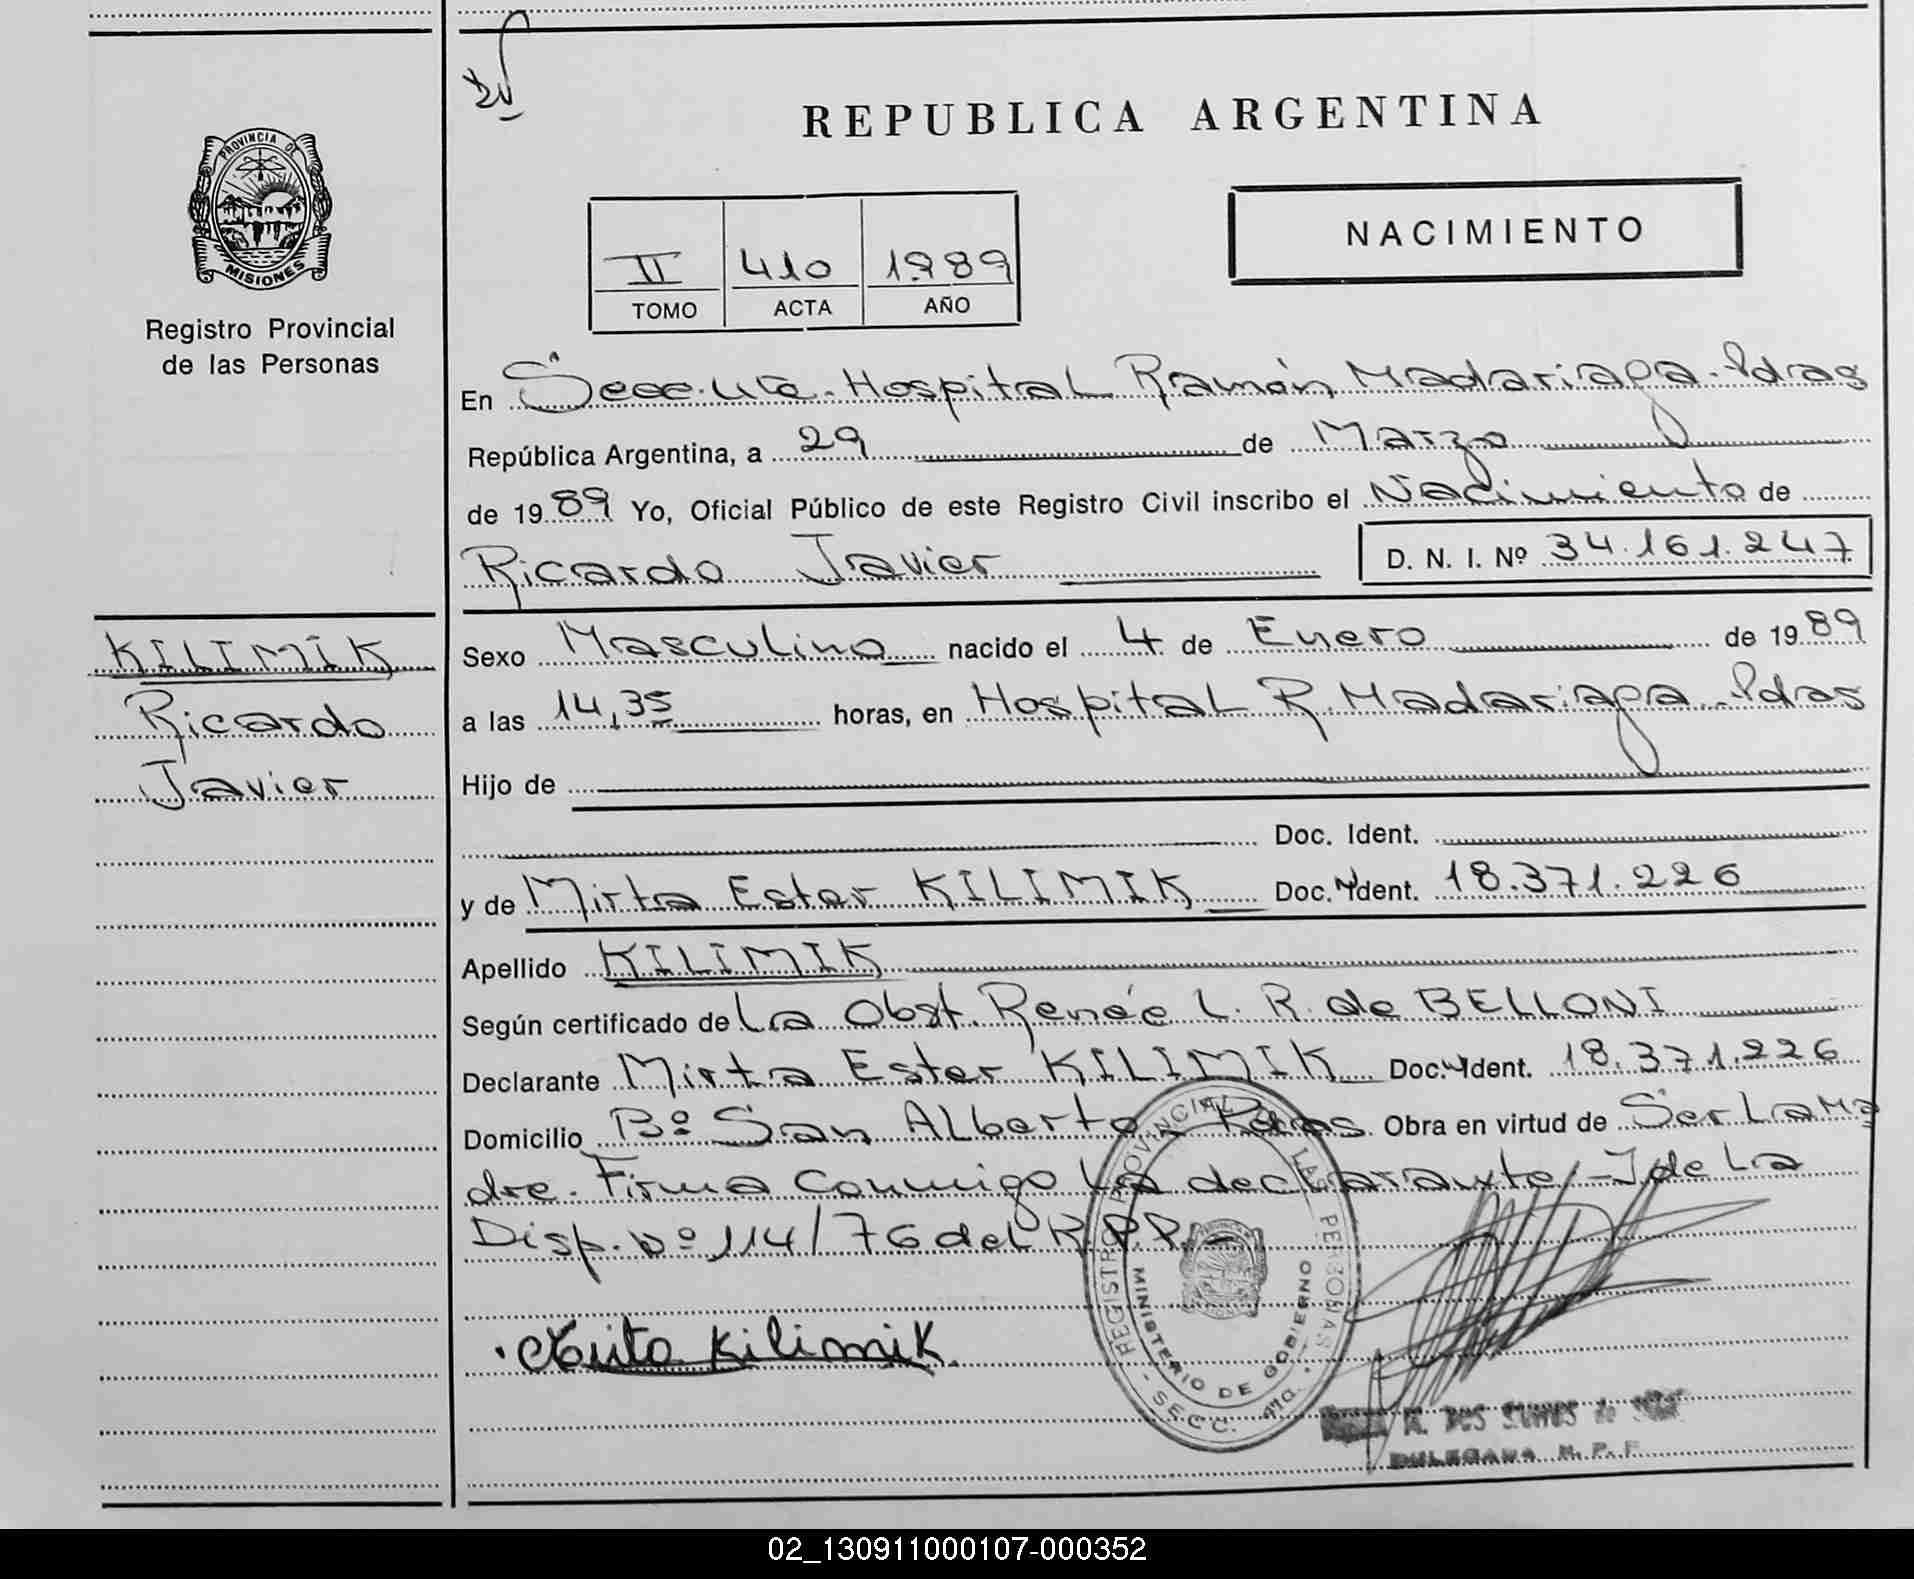 PROVINCIA DE
MISIONES
Registro Provincial
de las Personas
KILIMIK
Ricardo
Javier
REPUBLICA ARGENTINA
NACIMIENTO
II 410 1989
TOMO ACTA AÑO
En Hospital Ramón Madariaga - Pdas
República Argentina, a 29 de Marzo
de 1989 Yo, Oficial Público de este Registro Civil inscribo el Nacimiento de
Ricardo Javier D. N. I. Nº 34.161.247
Sexo Masculino nacido el 4 de Enero de 1989
a las 14,35 horas, en Hospital R. Madariaga - Pdas
Hijo de
Doc. Ident.
y de Mirta Ester KILIMIK Doc. Ident. 18.371.226
Apellido KILIMIK
Según certificado de La Obst. Renée L. R. de BELLONI
Declarante Mirta Ester KILIMIK Doc. Ident. 18.371.226
Domicilio Bº San Alberto - Pdas Obra en virtud de Ser La Ma
dre. Firma Conmigo La declarante/-I de La
Disp. Nº 114/76 del R.P.P.-
Mirta Kilimik
REGISTRO PROVINCIAL LAS PERSONAS
MINISTERIO DE GOBIERNO
SECC.
DOS
02_130911000107-000352